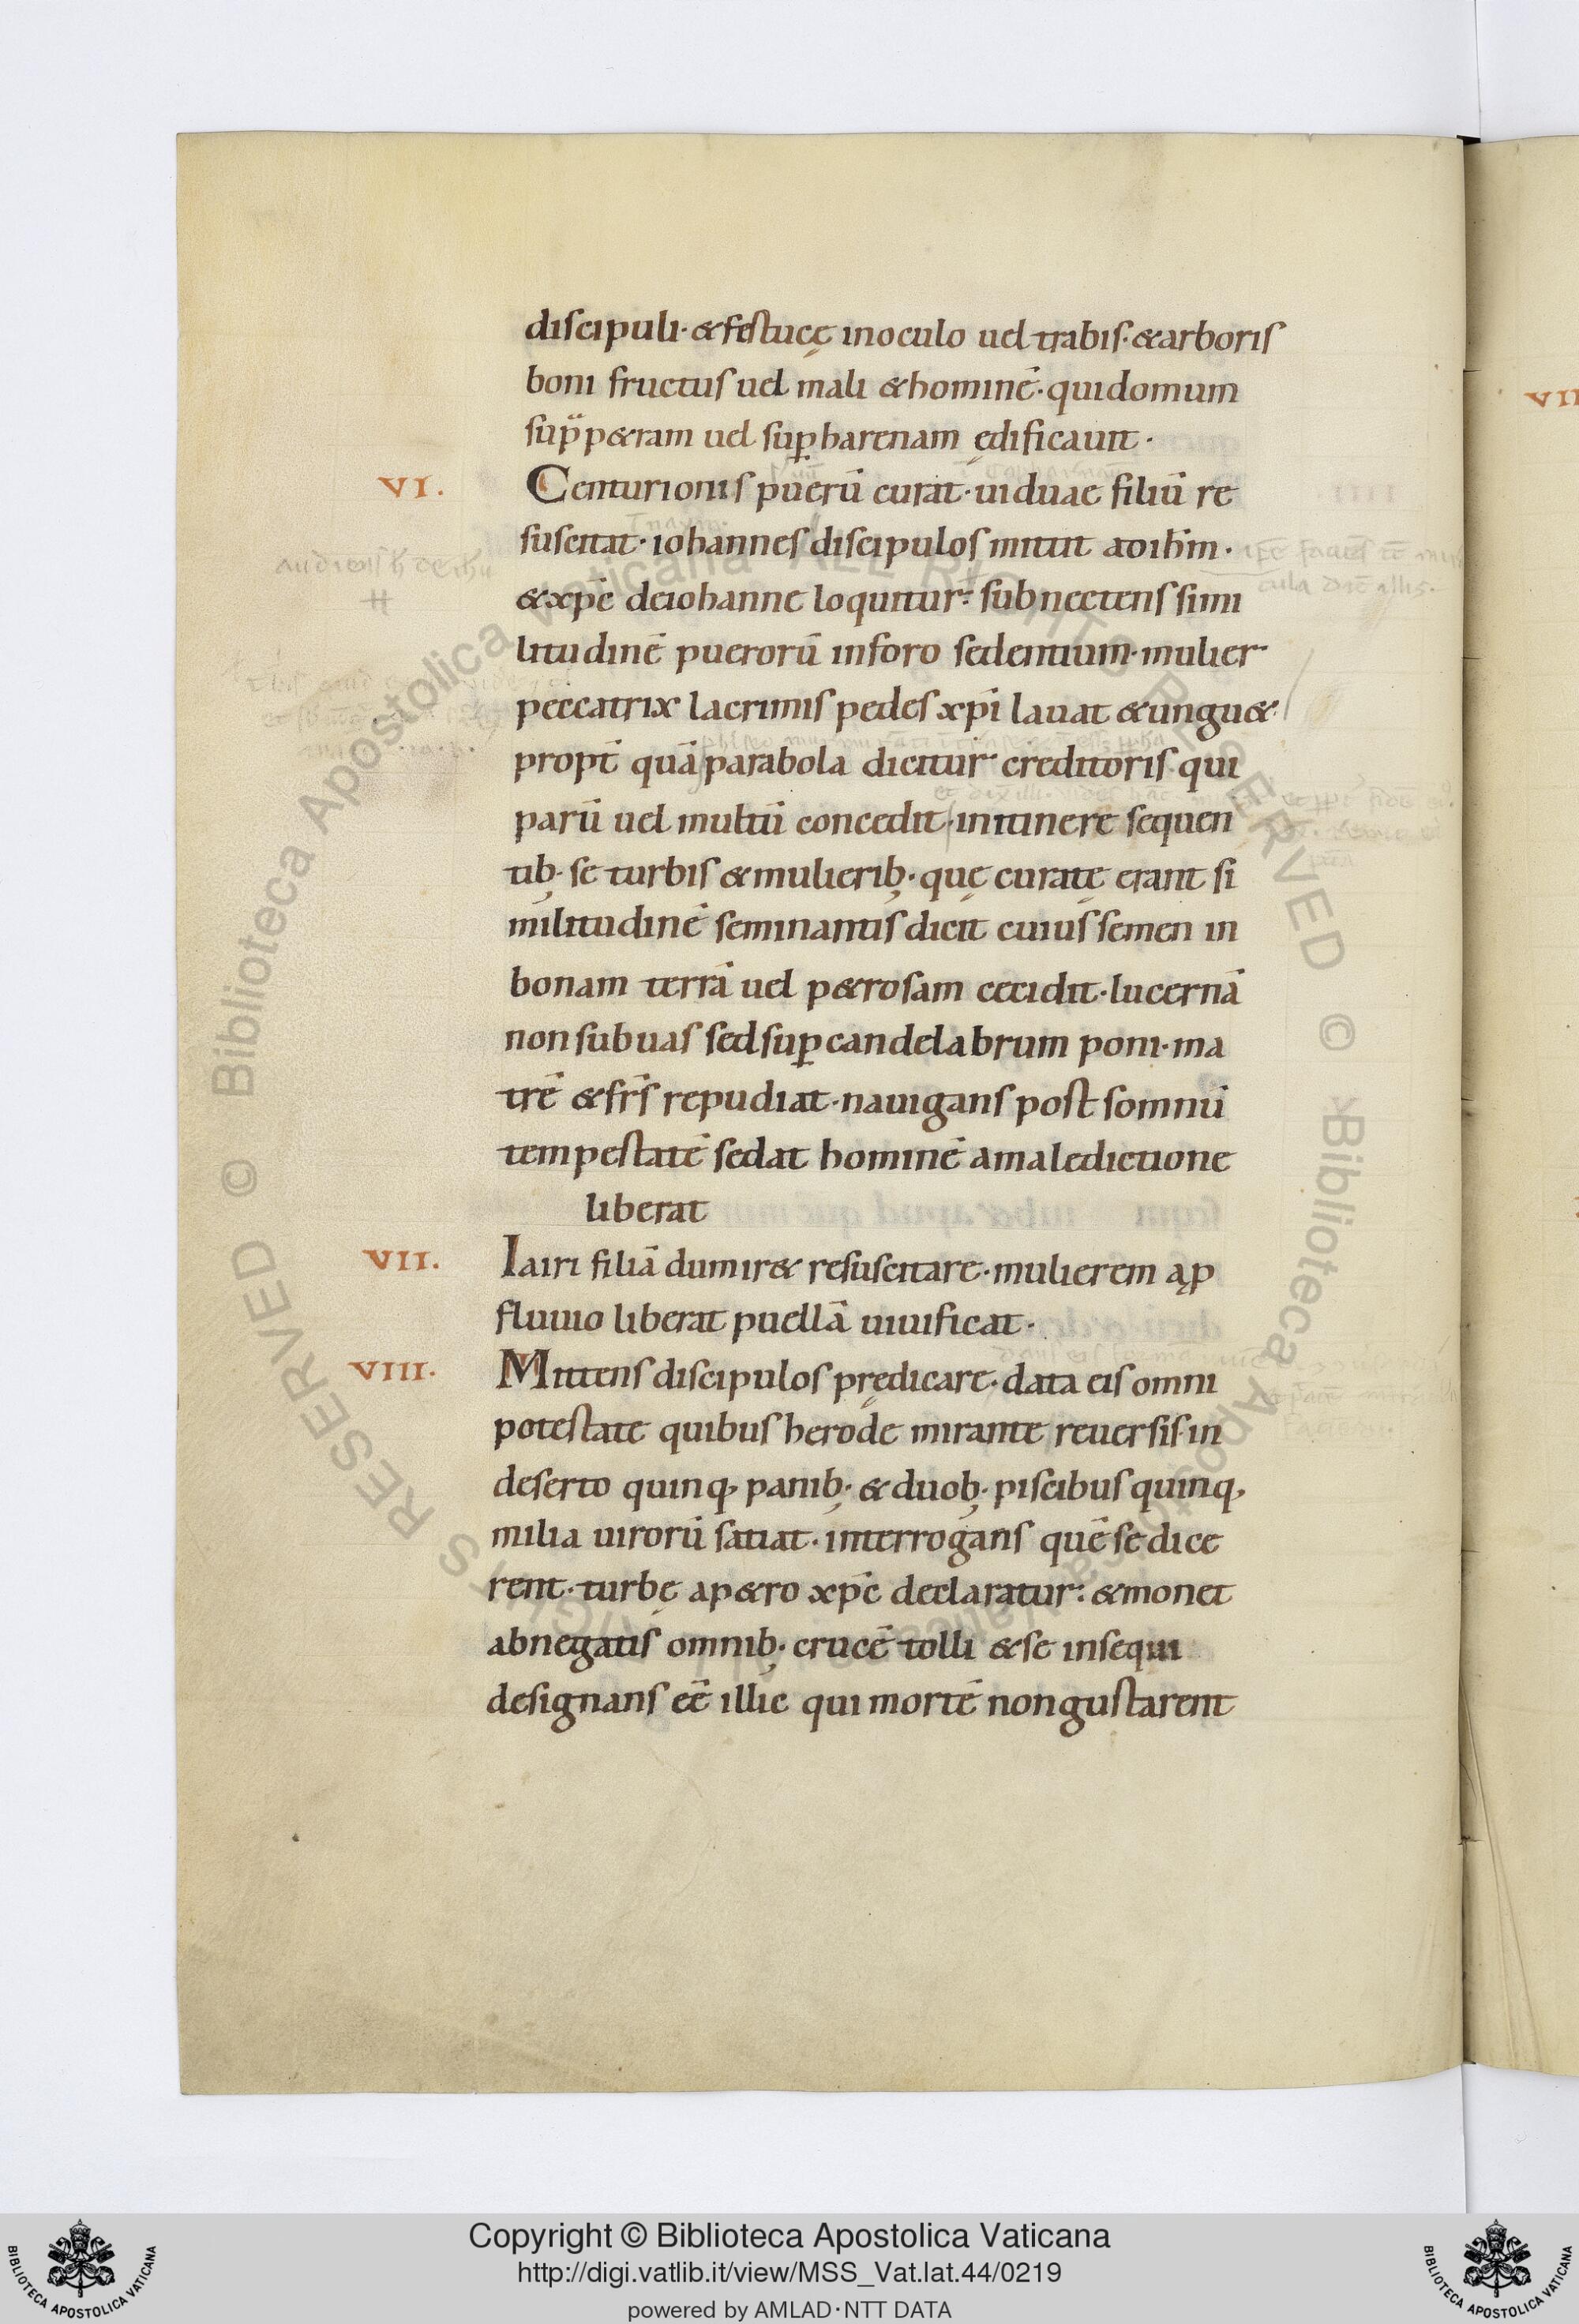 diſcipuli · & feſtucę in oculo uel trabiſ · & arboriſ
boni fructuſ uel mali & hominē · qui domum
ſup p&ram uel ſuꝑ harenam ędificauit ·
VI. Centurioniſ puerū curat · uiduae filiū re
ſuſcitat · iohanneſ diſcipuloſ mittit ad ihm̄ ·
& xp̄c de iohanne loquitur · ſubnectenſ ſimi
litudinē puerorū in foro ſedentium · mulier
peccatrix lacrimiſ pedeſ xp̄i lauat & ungu& ·
propt̄ quā parabola dicitur creditoriſ qui
parū uel multū concedit · in itinere ſequen
tib; ſe turbiſ & mulierib; · quę curatę erant ſi
militudinē ſeminantiſ dicit cuiuſ ſemen in
bonam terrā uel p&roſam cecidit · lucernā
non ſub uaſ ſed ſuꝑ candelabrum poni · ma
trē & fr̄ſ repudiat · nauiganſ poſt ſomnū
tempeſtatē ſedat hominē a maledictione
liberat
VII. Iairi filiā dum ir& reſuſcitare · mulierem a ꝓ
fluuio liberat puellā uiuificat ·
VIII. Mittenſ diſcipuloſ prędicare · data eiſ omni
poteſtate quibuſ herode mirante reuerſiſ · in
deſerto quinq; panib; · & duob; · piſcibuſ quinq;
milia uirorū ſatiat · interroganſ quē ſe dice
rent · turbę a p&ro xp̄c declaratur : & monet
abnegatiſ omnib; · crucē tolli & ſe inſequi
deſignanſ eē̄ illic qui mortē non guſtarent
VII
Copyright © Biblioteca Apostolica Vaticana
http://digi.vatlib.it/view/MSS_Vat.lat.44/0219
powered by AMLAD·NTT DATA
BIBLIOTECA APOSTOLICA VATICANA
BIBLIOTECA APOSTOLICA VATICANA